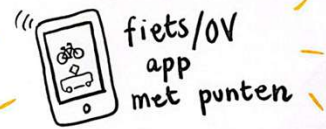 fiets/OV
app
met punten